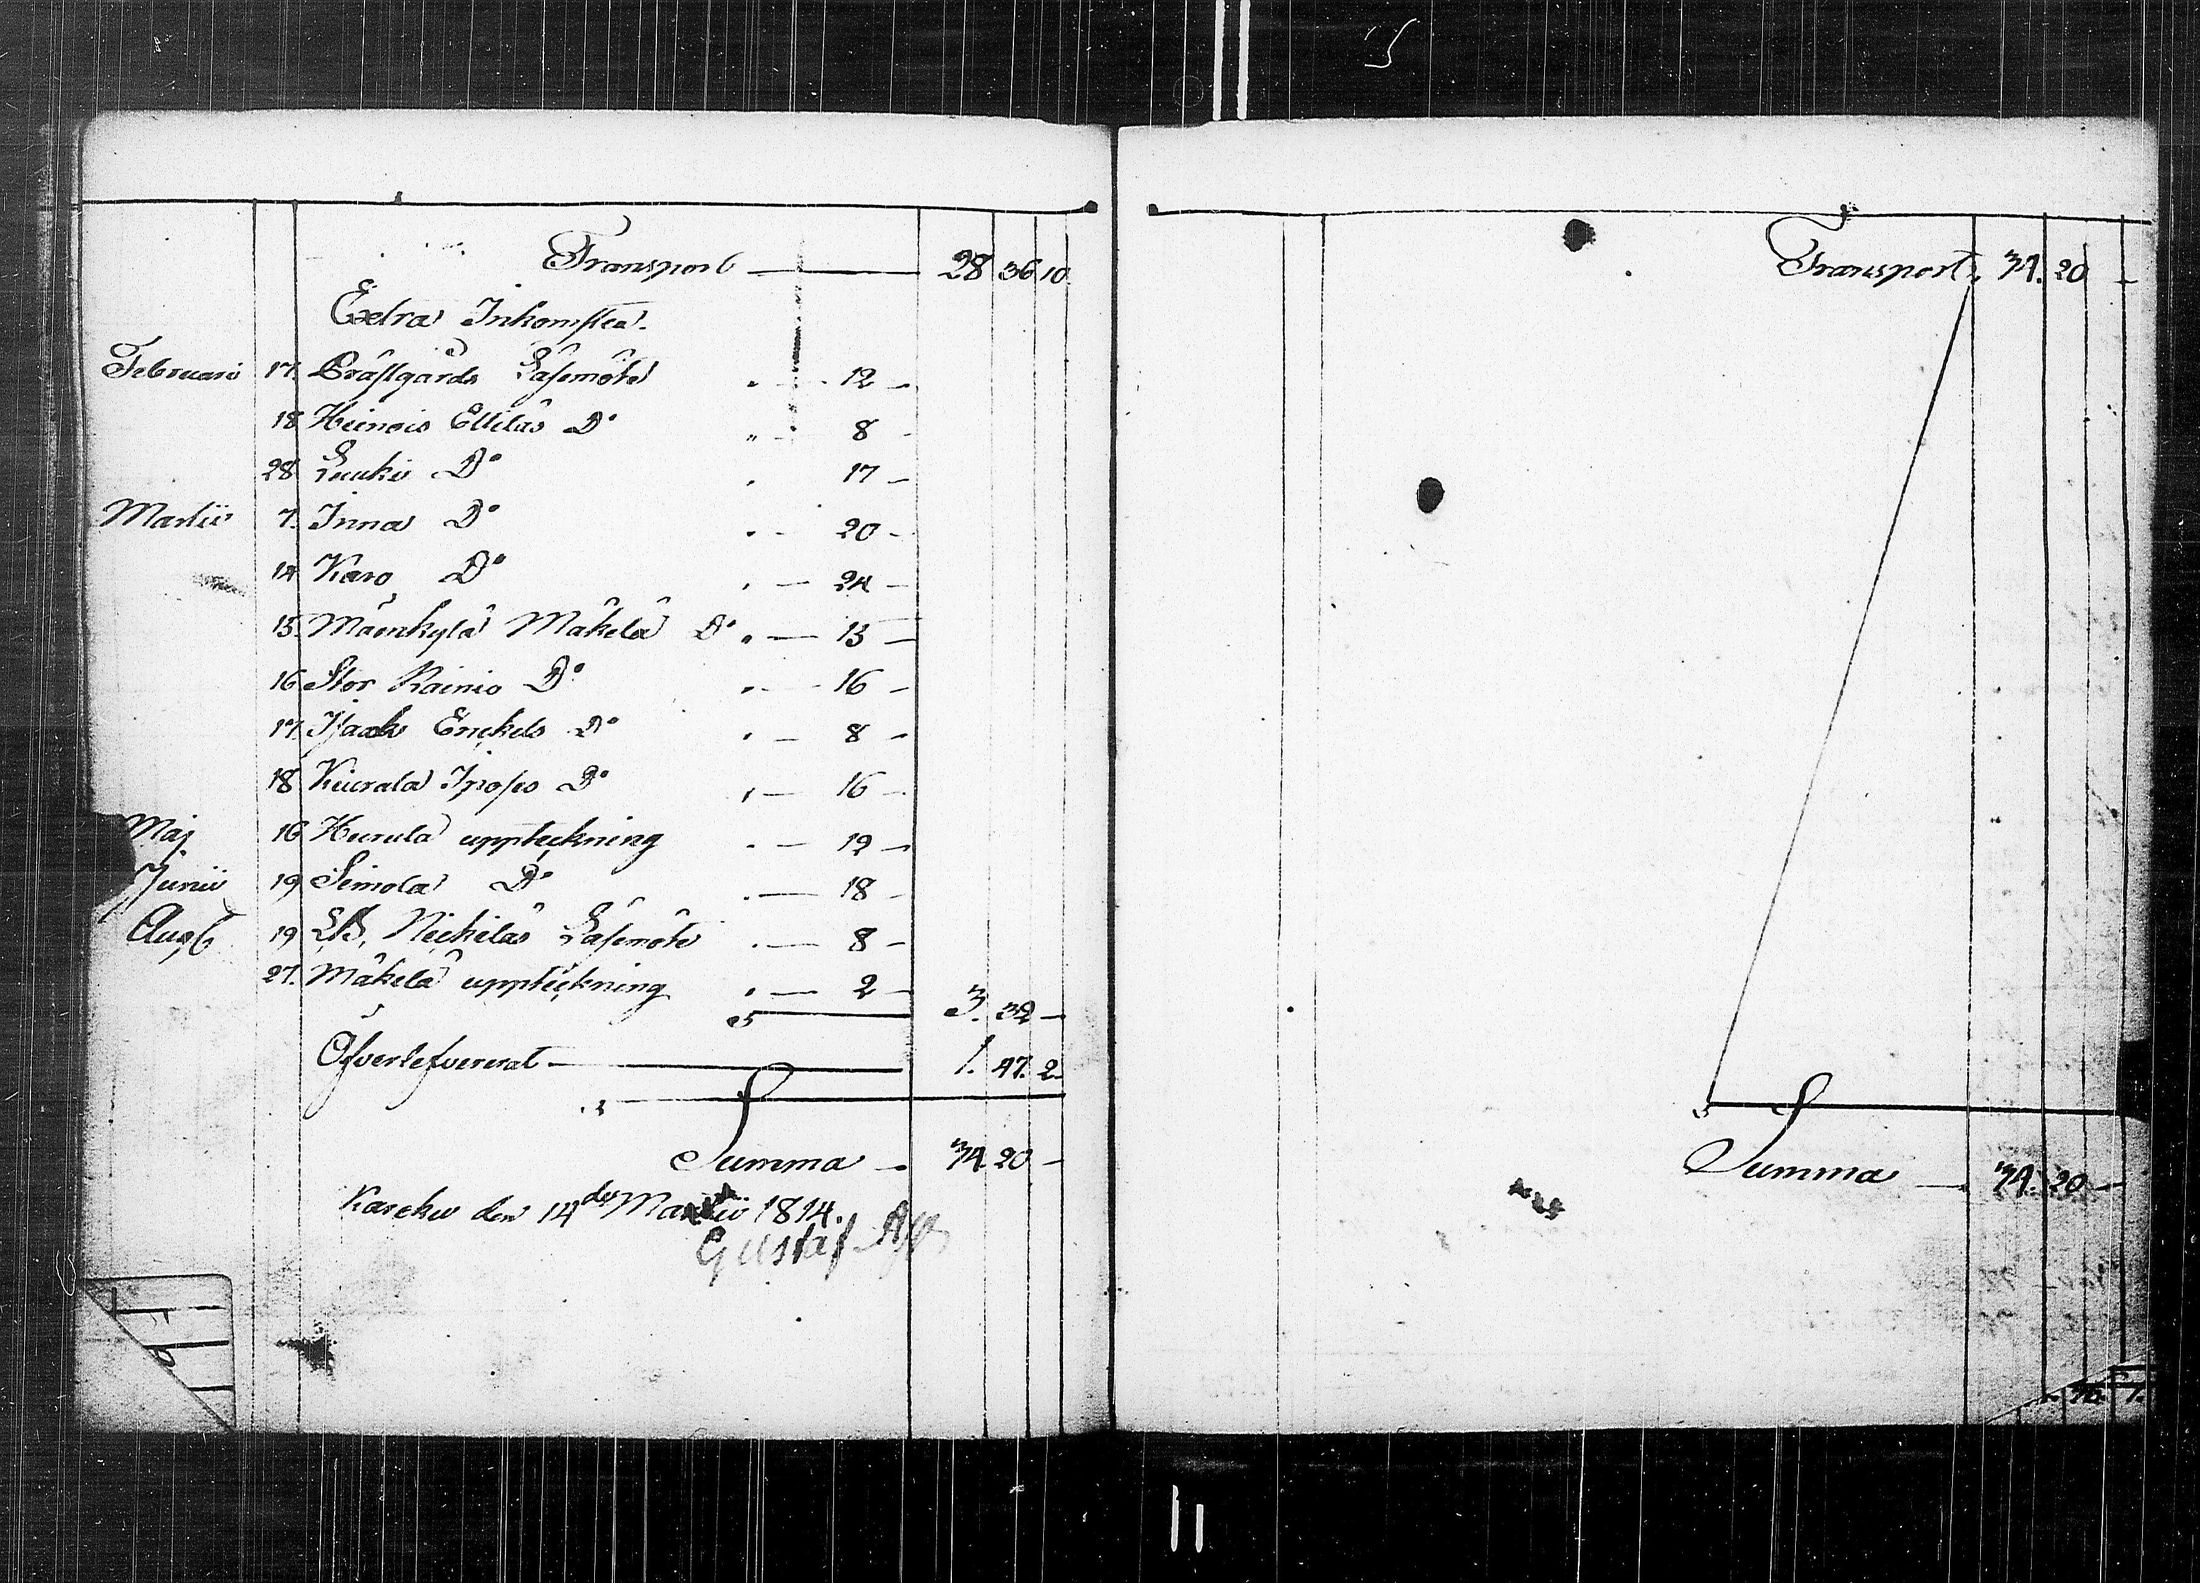 Transport — 28 36 10.
Extra Inkomster.
Februari 17. Prästgårds Läsemöte " — 12 —
18 Heinois Ellilas Do " — 8 —
28 Do " 17 —
Martii 7. Inna Do " — 20 —
14 Karo Do " — 24 —
15. Mäenkylä Mäkelä Do " — 13 —
16 Stor Rainio Do " — 16 —
17. Isaak Enckels Do " — 8 —
18 Kiurala Do " — 16 —
Maj 16 Hurula uppteckning " — 12 —
Junii 19 Simola Do " — 18 —
Aug. 19 Nickilas Läsemöte " — 8 —
27. Mäkelä uppteckning " — 2 — 3. 32 —
Öfverlefvererat — 1. 47. 2.
Summa — 34 20 —
Karcku den 14de Martii 1814.
Gustaf
Transport. 34. 20 —
Summa — 34. 20 —